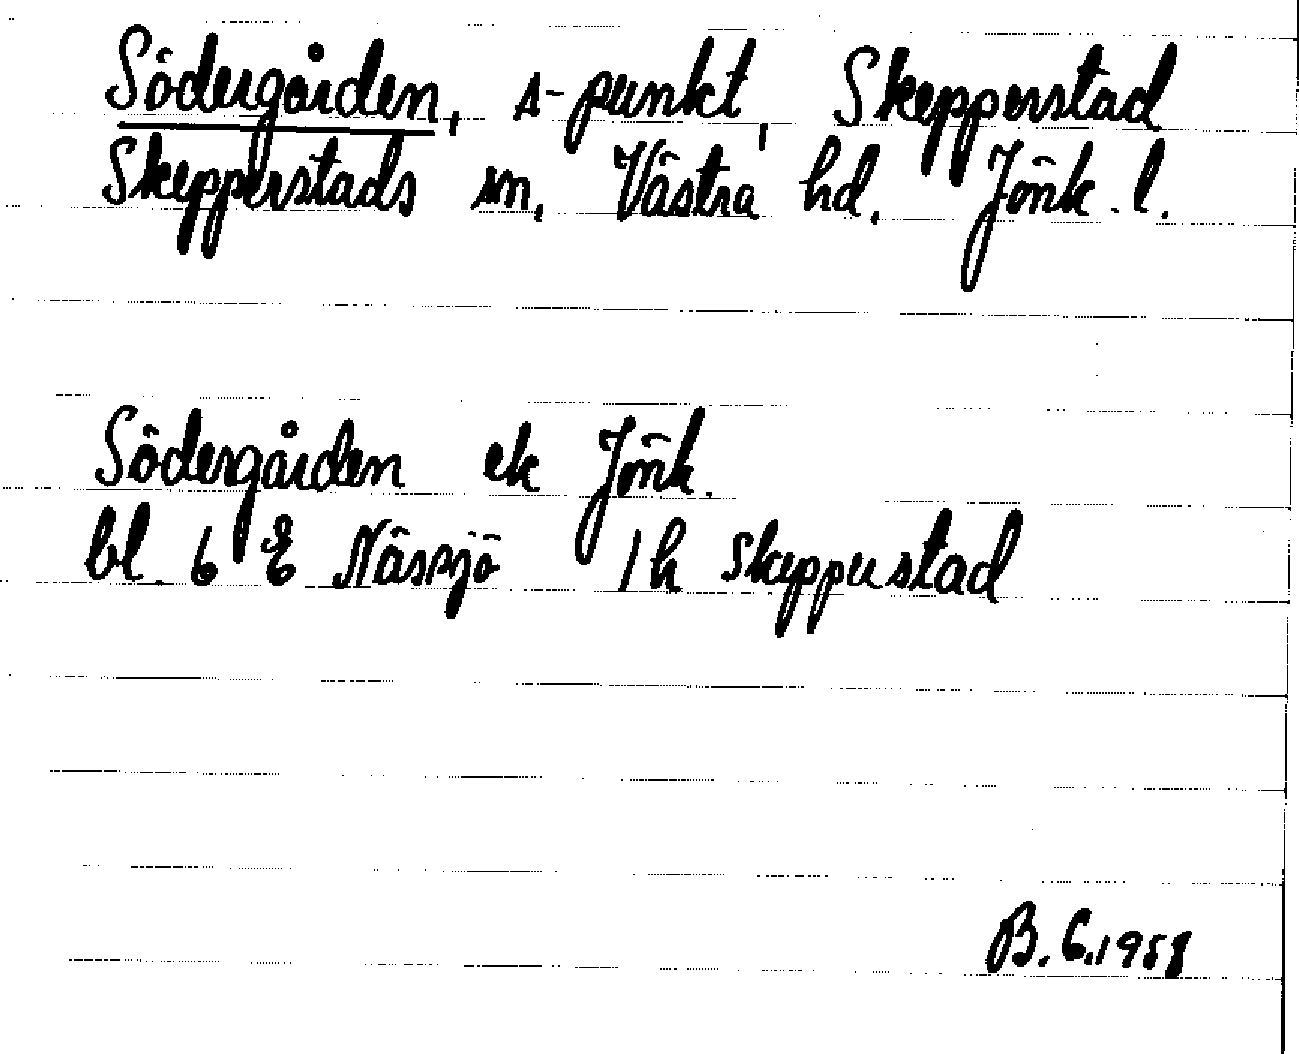 Södergården, s-punkt, Skepperstad
Skepperstads sn, Västra hd, Jönk. l.
Södergården ek Jönk.
bl. 6 E Nässjö 1h Skepperstad
B. C. 1958